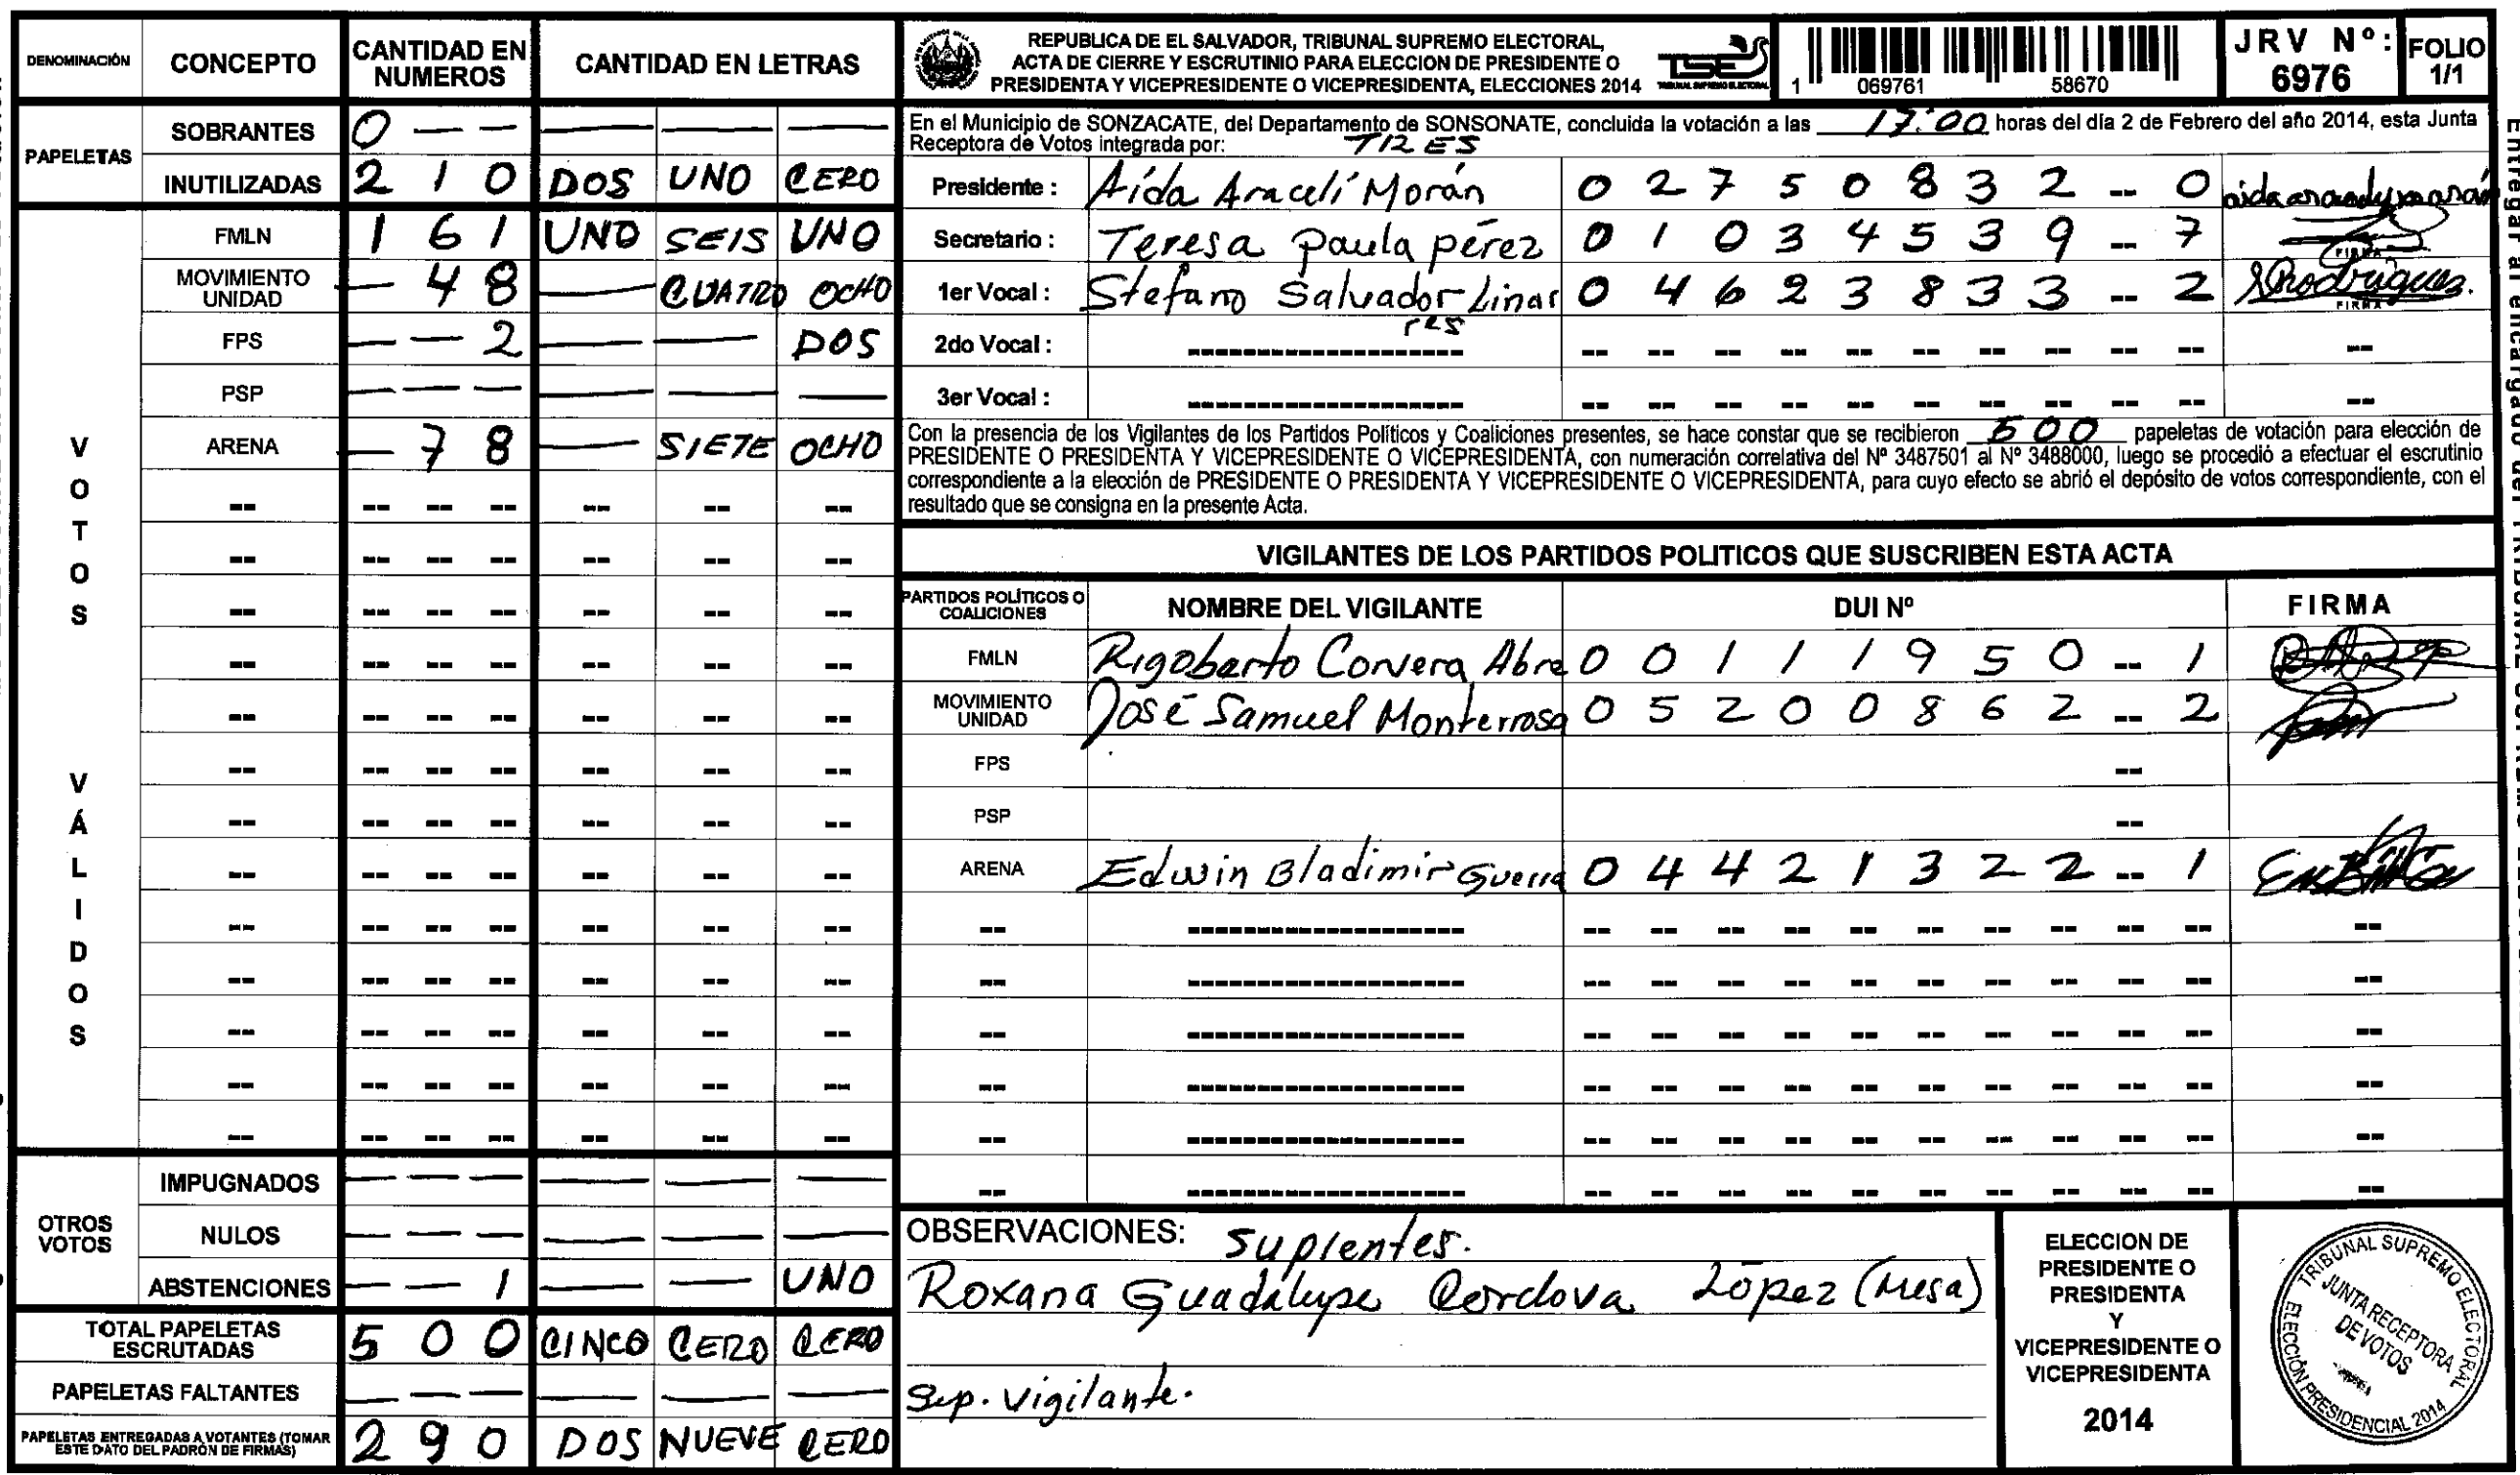 DENOMINACIÓN CONCEPTO CANTIDAD EN NUMEROS CANTIDAD EN LETRAS
PAPELETAS
SOBRANTES 0 — — — — —
INUTILIZADAS 2 1 0 DOS UNO CERO
VOTOS VÁLIDOS
FMLN 1 6 1 UNO SEIS UNO
MOVIMIENTO UNIDAD — 4 8 — CUATRO OCHO
FPS — — 2 — — DOS
PSP — — — — — —
ARENA — 7 8 — SIETE OCHO
-- -- -- -- -- -- --
-- -- -- -- -- -- --
-- -- -- -- -- -- --
-- -- -- -- -- -- --
-- -- -- -- -- -- --
-- -- -- -- -- -- --
-- -- -- -- -- -- --
-- -- -- -- -- -- --
-- -- -- -- -- -- --
-- -- -- -- -- -- --
-- -- -- -- -- -- --
-- -- -- -- -- -- --
-- -- -- -- -- -- --
OTROS VOTOS
IMPUGNADOS — — — — — —
NULOS — — — — — —
ABSTENCIONES — — 1 — — UNO
TOTAL PAPELETAS ESCRUTADAS 5 0 0 CINCO CERO CERO
PAPELETAS FALTANTES — — — — — —
PAPELETAS ENTREGADAS A VOTANTES (TOMAR ESTE DATO DEL PADRÓN DE FIRMAS) 2 9 0 DOS NUEVE CERO
REPUBLICA DE EL SALVADOR, TRIBUNAL SUPREMO ELECTORAL,
ACTA DE CIERRE Y ESCRUTINIO PARA ELECCION DE PRESIDENTE O
PRESIDENTA Y VICEPRESIDENTE O VICEPRESIDENTA, ELECCIONES 2014
TSE
TRIBUNAL SUPREMO ELECTORAL
1 069761 58670
JRV Nº: 6976
FOLIO 1/1
En el Municipio de SONZACATE, del Departamento de SONSONATE, concluida la votación a las 17:00 horas del día 2 de Febrero del año 2014, esta Junta
Receptora de Votos integrada por: TRES
Presidente : Aída Aracelí Morán 0 2 7 5 0 8 3 2 -- 0
Secretario : Teresa Paula pérez 0 1 0 3 4 5 3 9 -- 7 FIRMA
1er Vocal : Stefano Salvador Linar res 0 4 6 2 3 8 3 3 -- 2 SRodriguez. FIRMA
2do Vocal : -- -- -- -- -- -- -- -- -- -- --
3er Vocal : -- -- -- -- -- -- -- -- -- -- --
Con la presencia de los Vigilantes de los Partidos Políticos y Coaliciones presentes, se hace constar que se recibieron 500 papeletas de votación para elección de
PRESIDENTE O PRESIDENTA Y VICEPRESIDENTE O VICEPRESIDENTA, con numeración correlativa del Nº 3487501 al Nº 3488000, luego se procedió a efectuar el escrutinio
correspondiente a la elección de PRESIDENTE O PRESIDENTA Y VICEPRESIDENTE O VICEPRESIDENTA, para cuyo efecto se abrió el depósito de votos correspondiente, con el
resultado que se consigna en la presente Acta.
VIGILANTES DE LOS PARTIDOS POLITICOS QUE SUSCRIBEN ESTA ACTA
PARTIDOS POLÍTICOS O COALICIONES NOMBRE DEL VIGILANTE DUI Nº FIRMA
FMLN Rigoberto Corvera Abre 0 0 1 1 1 9 5 0 -- 1
MOVIMIENTO UNIDAD José Samuel Monterrosa 0 5 2 0 0 8 6 2 -- 2
FPS --
PSP --
ARENA Edwin Bladimir Guerra 0 4 4 2 1 3 2 2 -- 1
OBSERVACIONES: suplentes.
Roxana Guadalupe Cordova López (Mesa)
Sup. vigilante.
ELECCION DE
PRESIDENTE O
PRESIDENTA
Y
VICEPRESIDENTE O
VICEPRESIDENTA
2014
TRIBUNAL SUPREMO ELECTORAL
JUNTA RECEPTORA
DE VOTOS
ELECCIÓN PRESIDENCIAL 2014